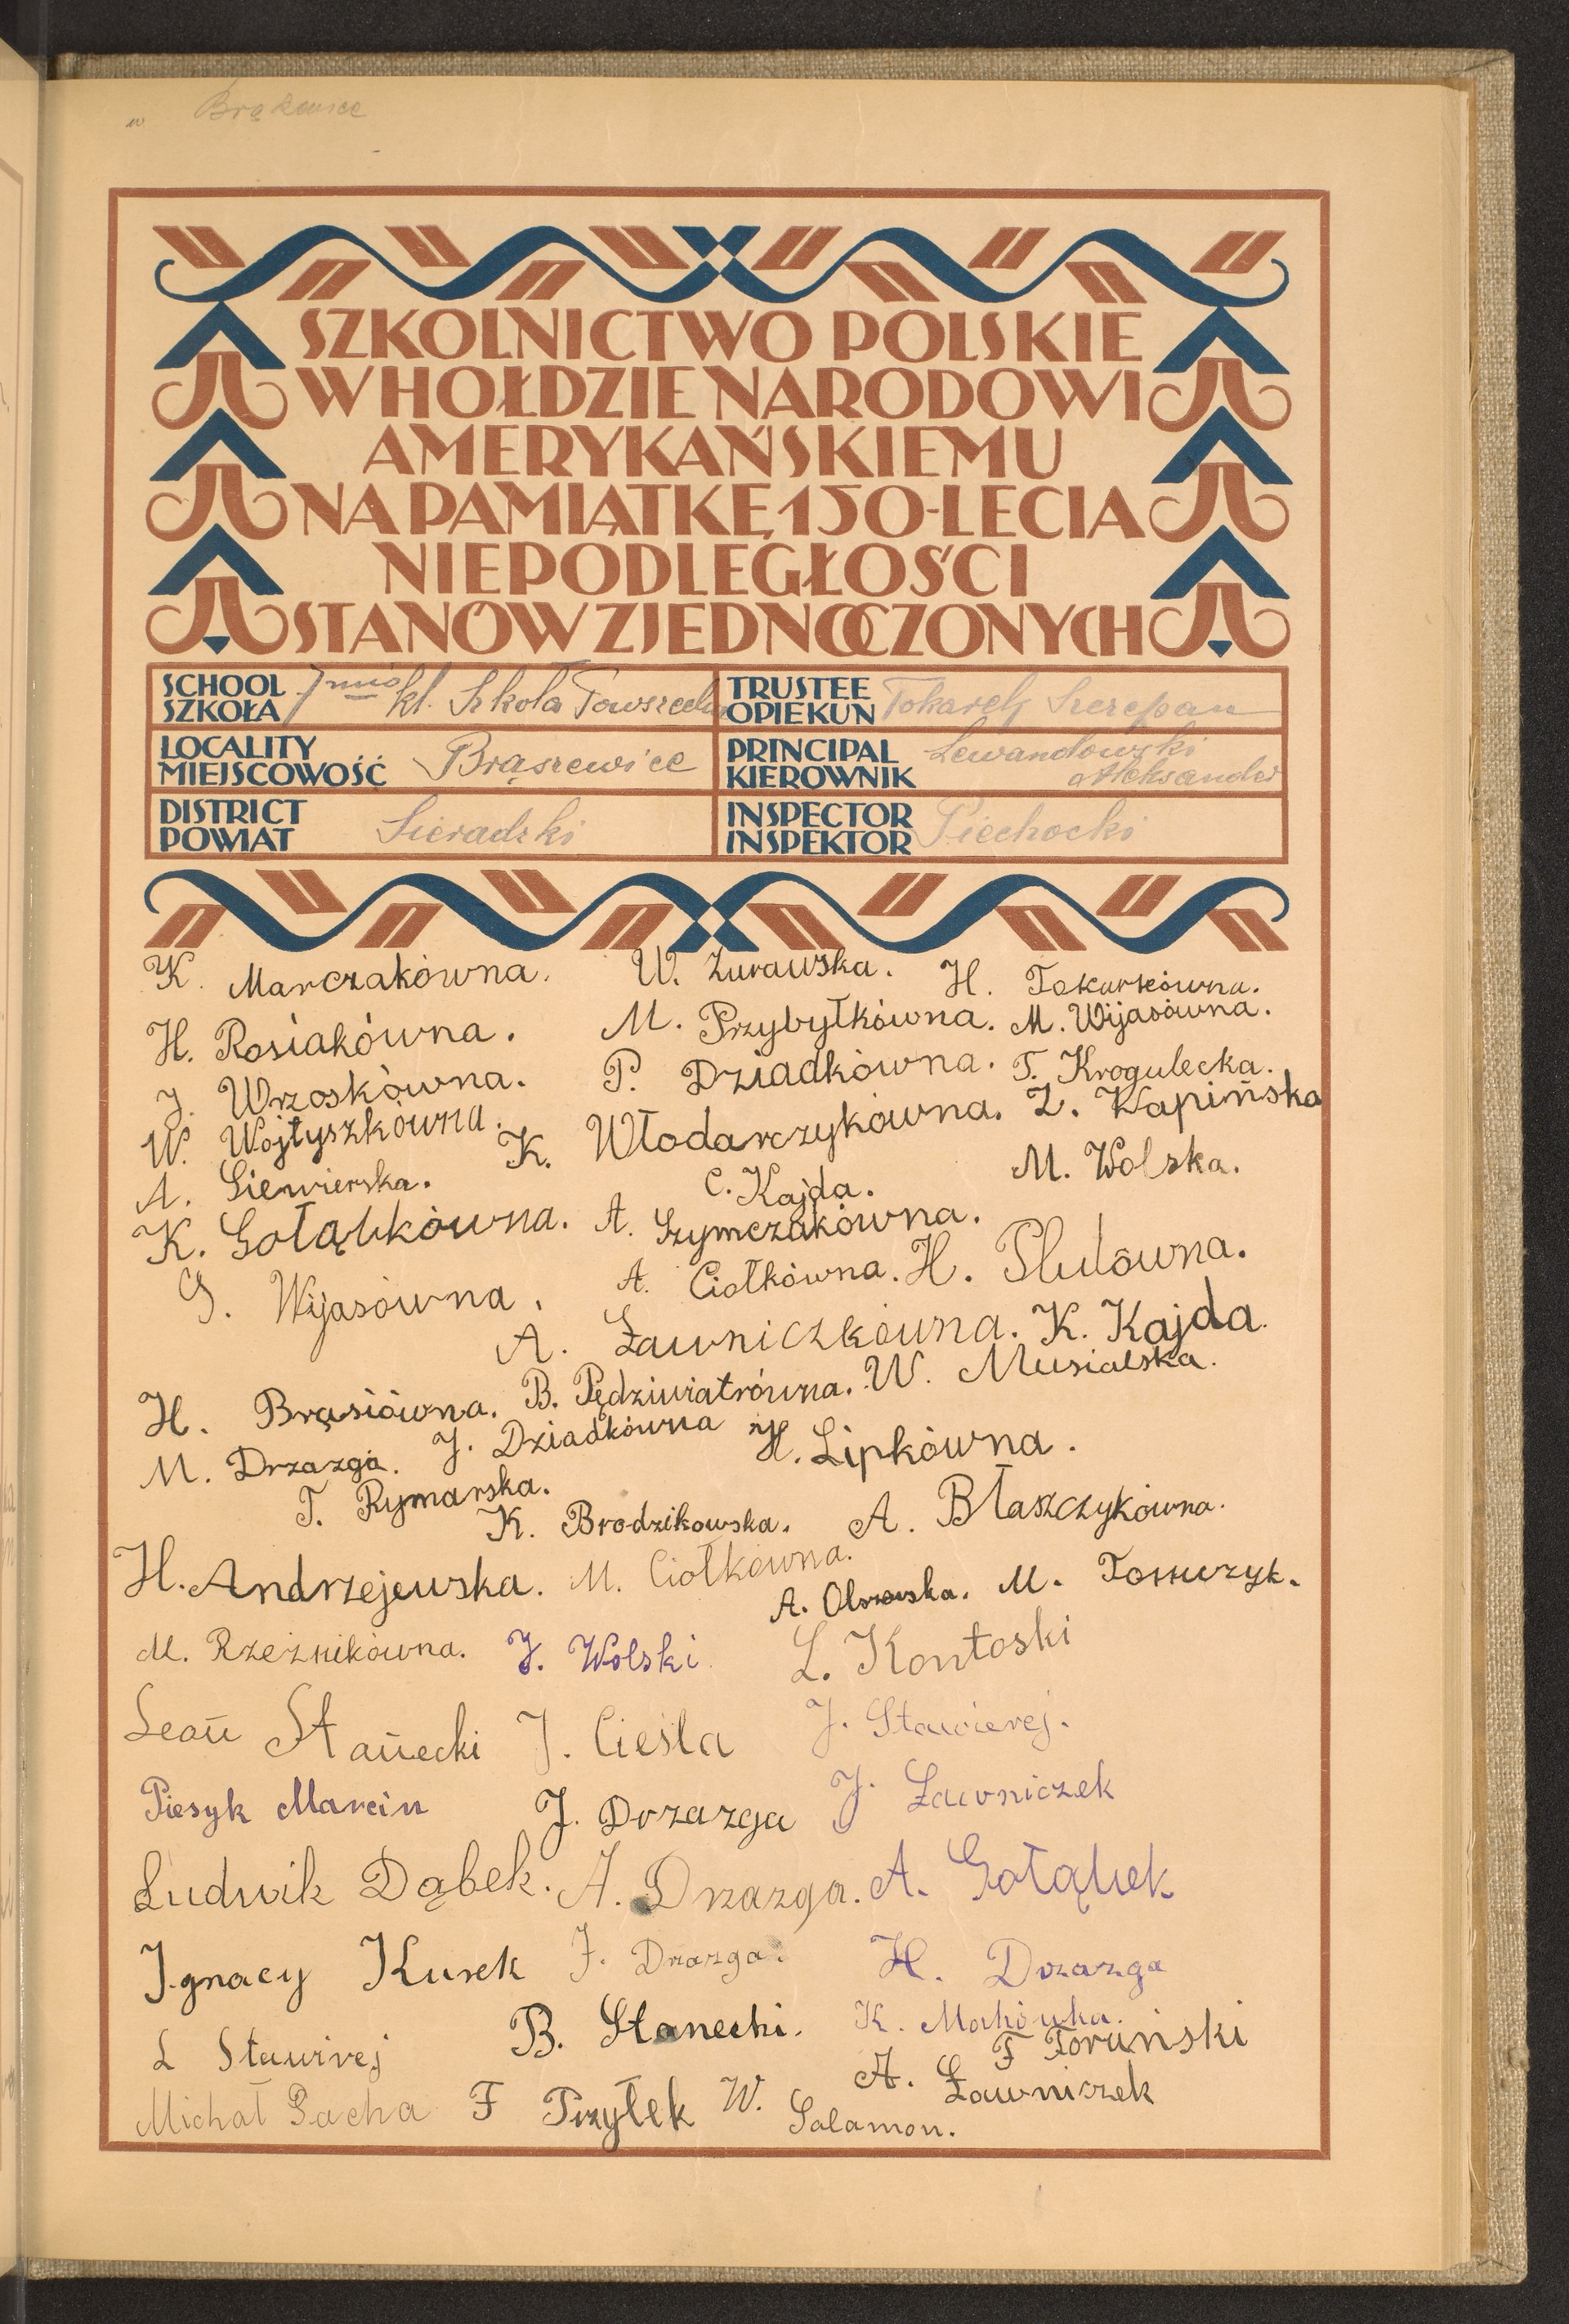 w Brąszewice
SZKOLNICTWO POLSKIE
W HOŁDZIE NARODOWI
AMERYKAŃSKIEMU
NA PAMIĄTKĘ 150-LECIA
NIEPODLEGŁOŚCI
STANÓW ZJEDNOCZONYCH
SCHOOL SZKOŁA 7 mio kl. Szkoła Powszechn
TRUSTEE OPIEKUN Tokarek Szczepan
LOCALITY MIEJSCOWOŚĆ Brąszewice
PRINCIPAL KIEROWNIK Lewandowski Aleksander
DISTRICT POWIAT Sieradzki
INSPECTOR INSPEKTOR Piechocki
K. Marczakówna. W. Żurawska. H. Tokarkówna.
H. Rosiakówna. M. Przybyłkówna. M. Wijasówna.
J. Wrzoskówna. P. Dziadkówna. T. Krogulecka.
W. Wojtyszkówna. K. Włodarczykówna. Z. Kapińska
A. Siewierska. C. Kajda. M. Wolska.
K. Gołąbkówna. A. Szymczakówna.
G. Wijasówna. A. Ciołkówna. H. Plutówna.
A. Ławniczkówna. K. Kajda.
H. Brąsiówna. B. Pędziwiatrówna. W. Musialska.
M. Drzazga. J. Dziadkówna H. Lipkówna.
T. Rymarska. K. Brodzikowska. A. Błaszczykówna.
H. Andrzejewska. M. Ciołkówna. A. Olszewska. M. Tomczyk.
M. Rzeźnikówna. J. Wolski L. Kontoski
Leon Stanecki J. Cieśla J. Stawierej.
Piesyk Marcin J. Drzazga J. Ławniczek
Ludwik Dąbek. A. Drzazga. A. Gołąbek
Ignacy Kurek J. Drzazga. H. Drzazga
L Stawirej B. Stanecki. K. Makówka.
F Toruński
A. Ławniczek
Michał Pacha F Przyłek W. Salamon.